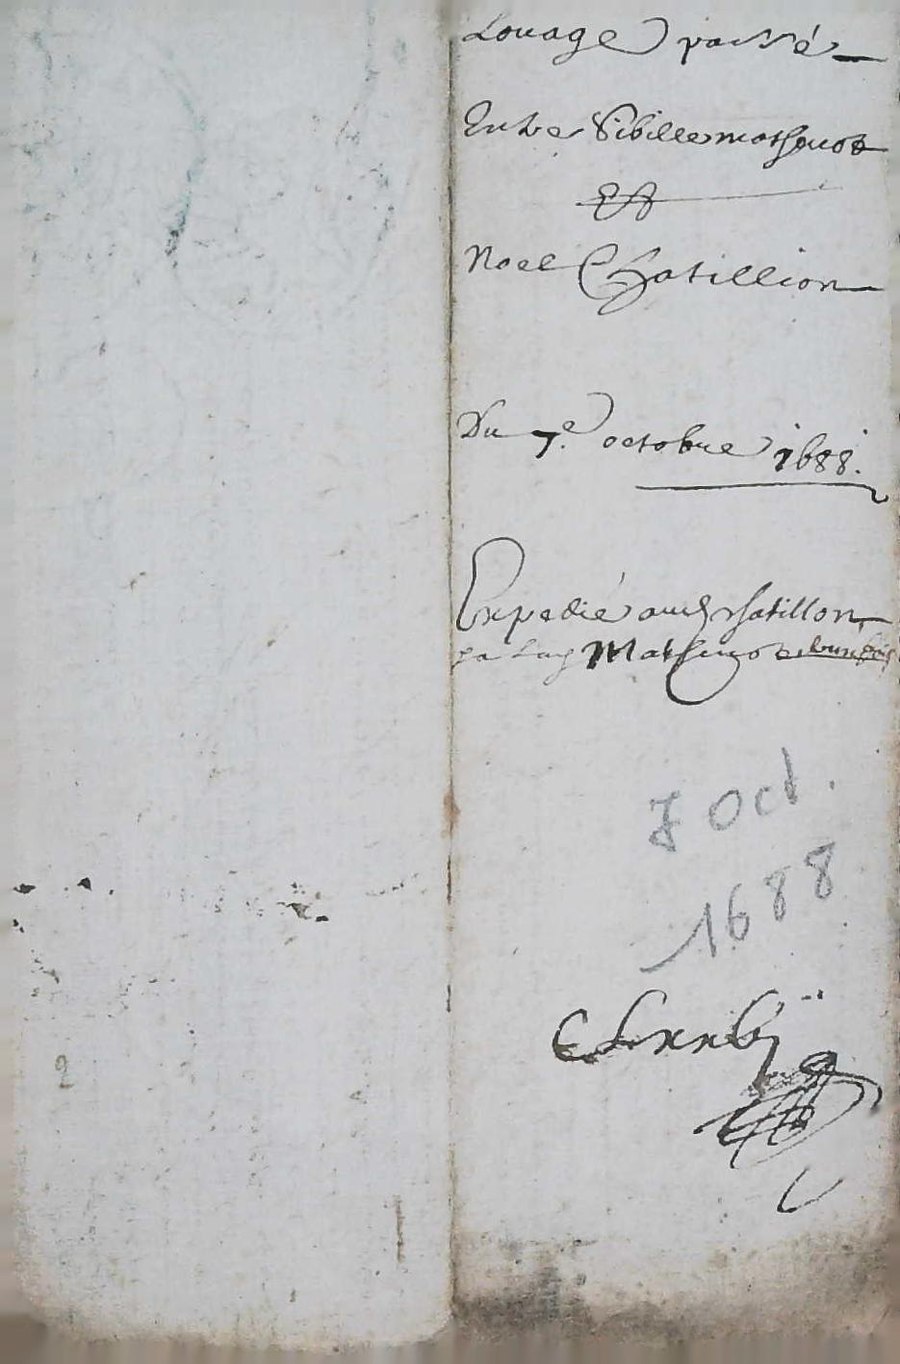 Louage passé
Entre Sibille mathenot
Et
Noel Chatillion
Du 7.e octobre 1688.
Expedié aud chatillon
Mathenot
7 Oct.
1688
2